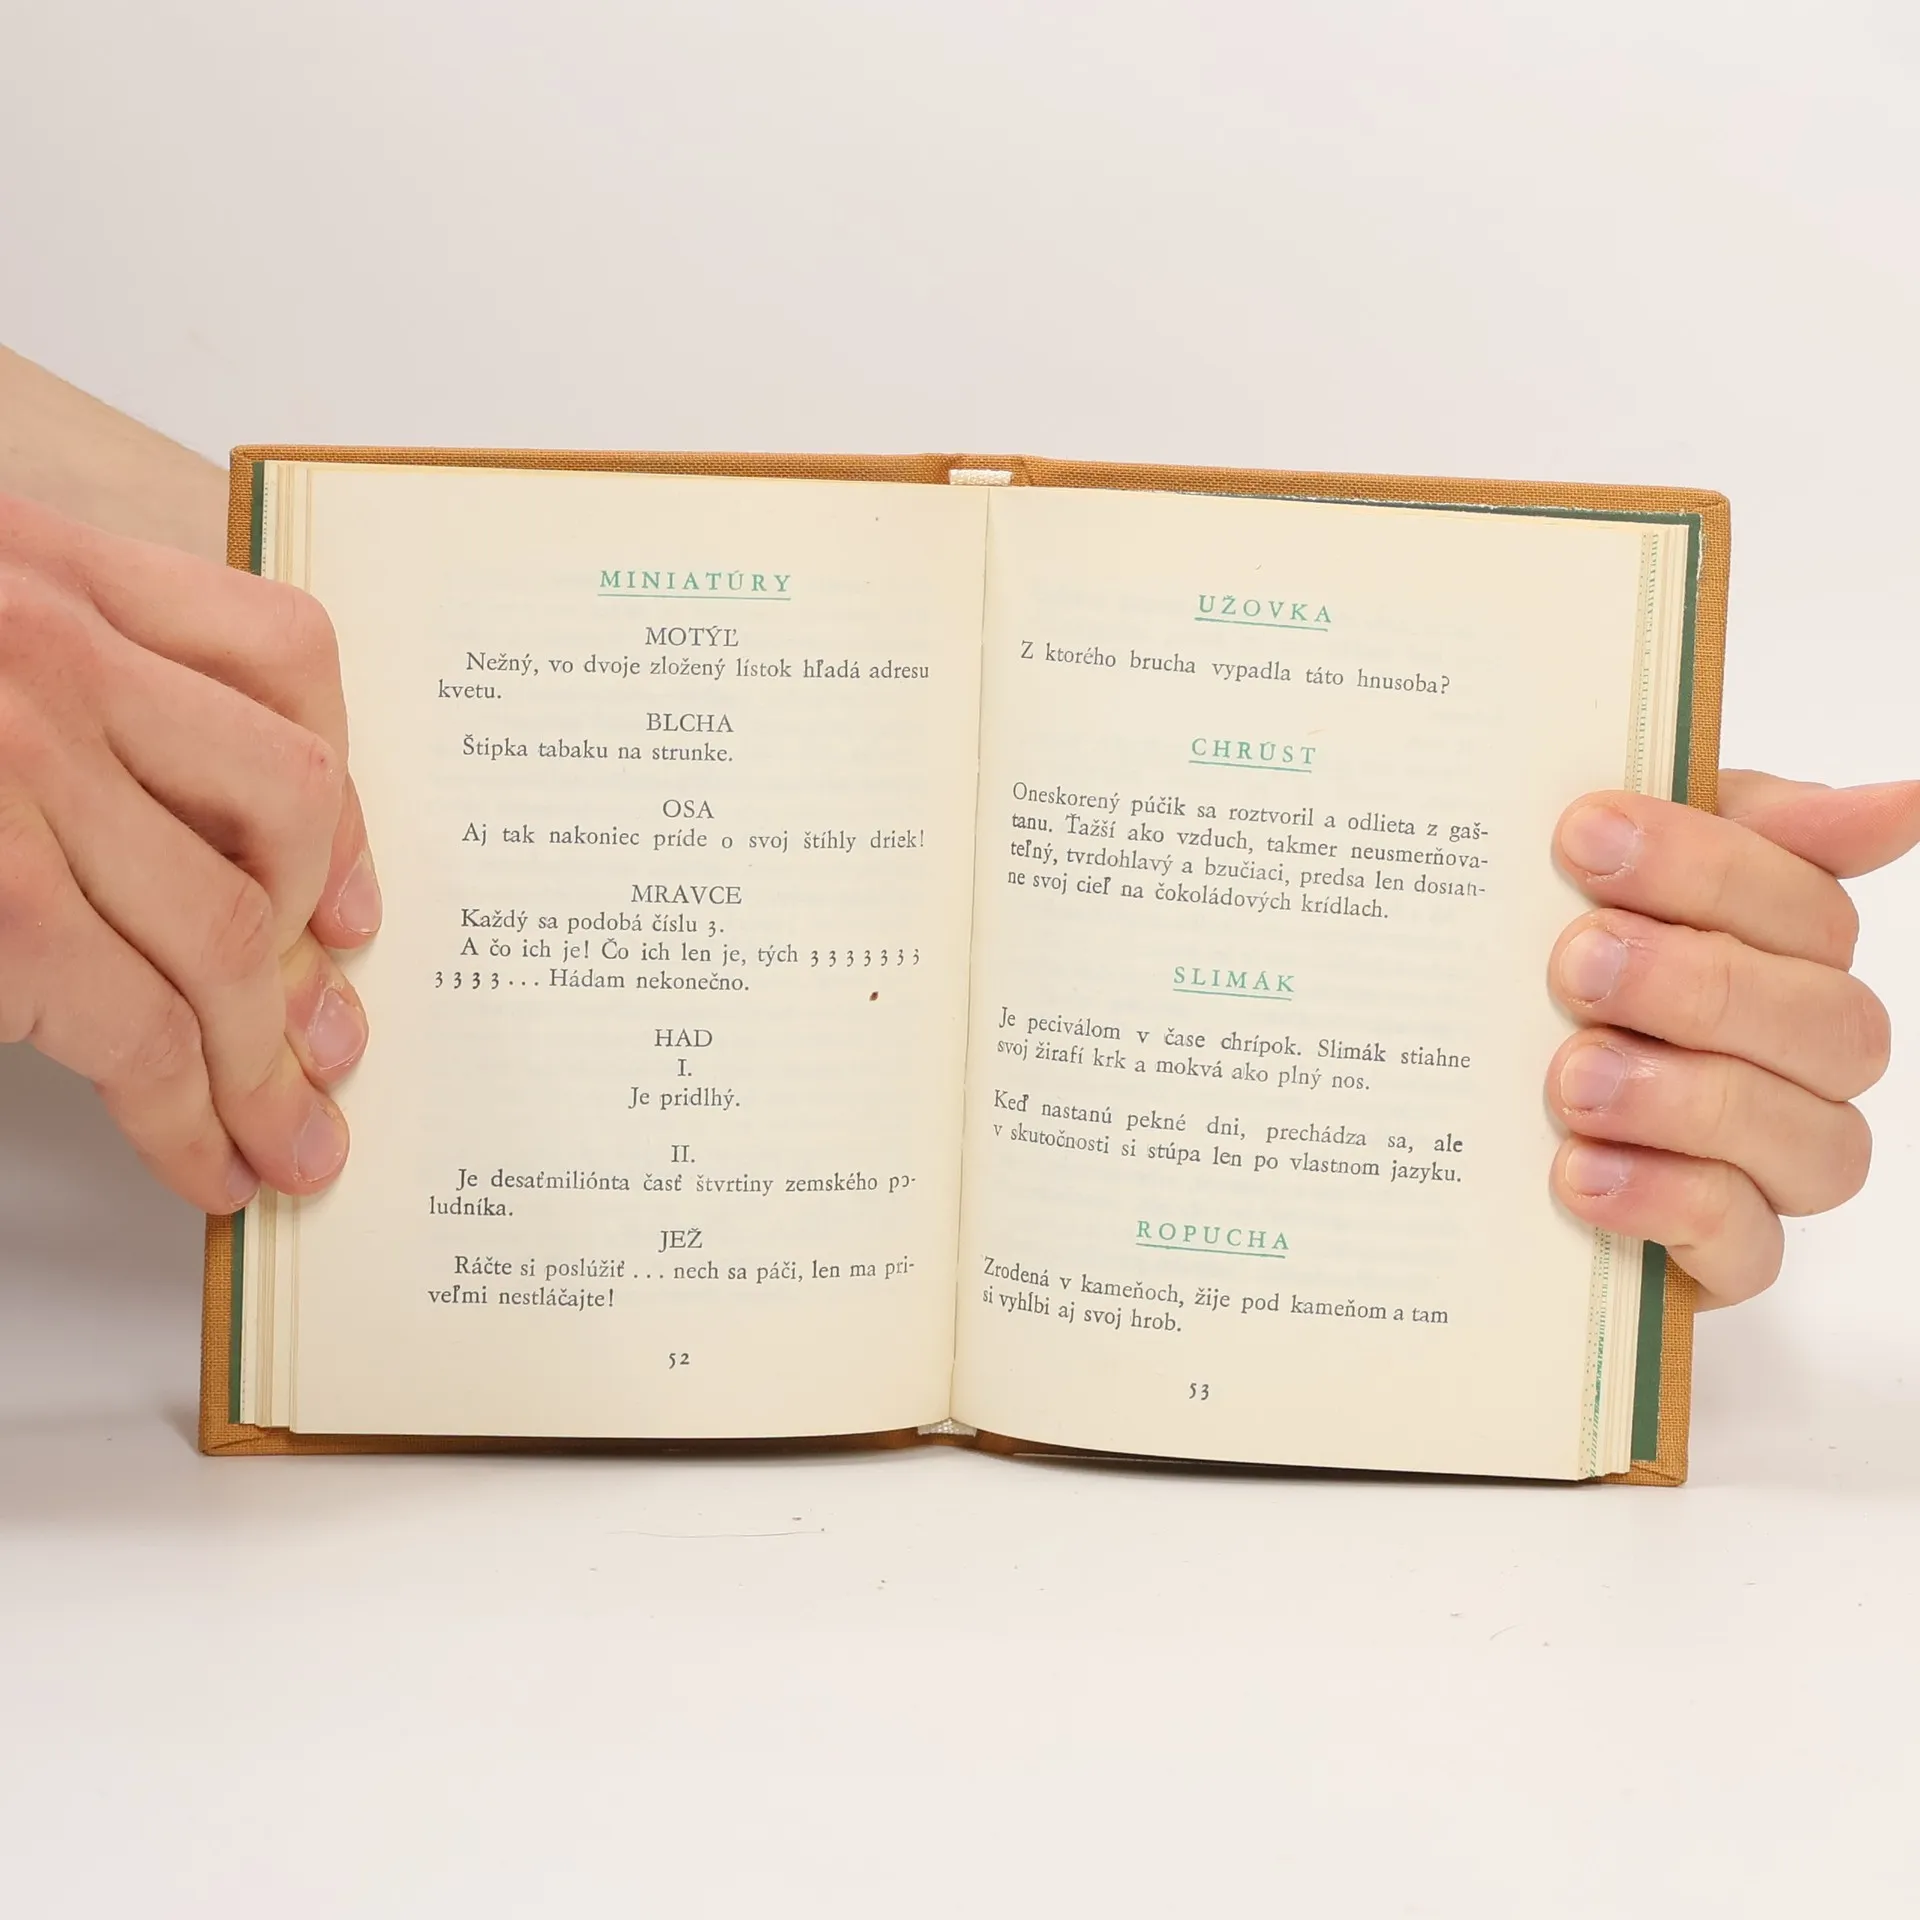 MINIATÚRY
MOTÝĽ
Nežný, vo dvoje zložený lístok hľadá adresu
kvetu.
BLCHA
Štipka tabaku na strunke.
OSA
Aj tak nakoniec príde o svoj štíhly driek!
MRAVCE
Každý sa podobá číslu 3.
A čo ich je! Čo ich len je, tých 3 3 3 3 3 3 3
3 3 3 3 . . . Hádam nekonečno.
HAD
I.
Je pridlhý.
II.
Je desaťmiliónta časť štvrtiny zemského po-
ludníka.
JEŽ
Ráčte si poslúžiť . . . nech sa páči, len ma pri-
veľmi nestláčajte!
52
UŽOVKA
Z ktorého brucha vypadla táto hnusoba?
CHRÚST
Oneskorený púčik sa roztvoril a odlieta z gaš-
tanu. Ťažší ako vzduch, takmer neusmerňova-
teľný, tvrdohlavý a bzučiaci, predsa len dosiah-
ne svoj cieľ na čokoládových krídlach.
SLIMÁK
Je peciválom v čase chrípok. Slimák stiahne
svoj žirafí krk a mokvá ako plný nos.
Keď nastanú pekné dni, prechádza sa, ale
v skutočnosti si stúpa len po vlastnom jazyku.
ROPUCHA
Zrodená v kameňoch, žije pod kameňom a tam
si vyhĺbi aj svoj hrob.
53